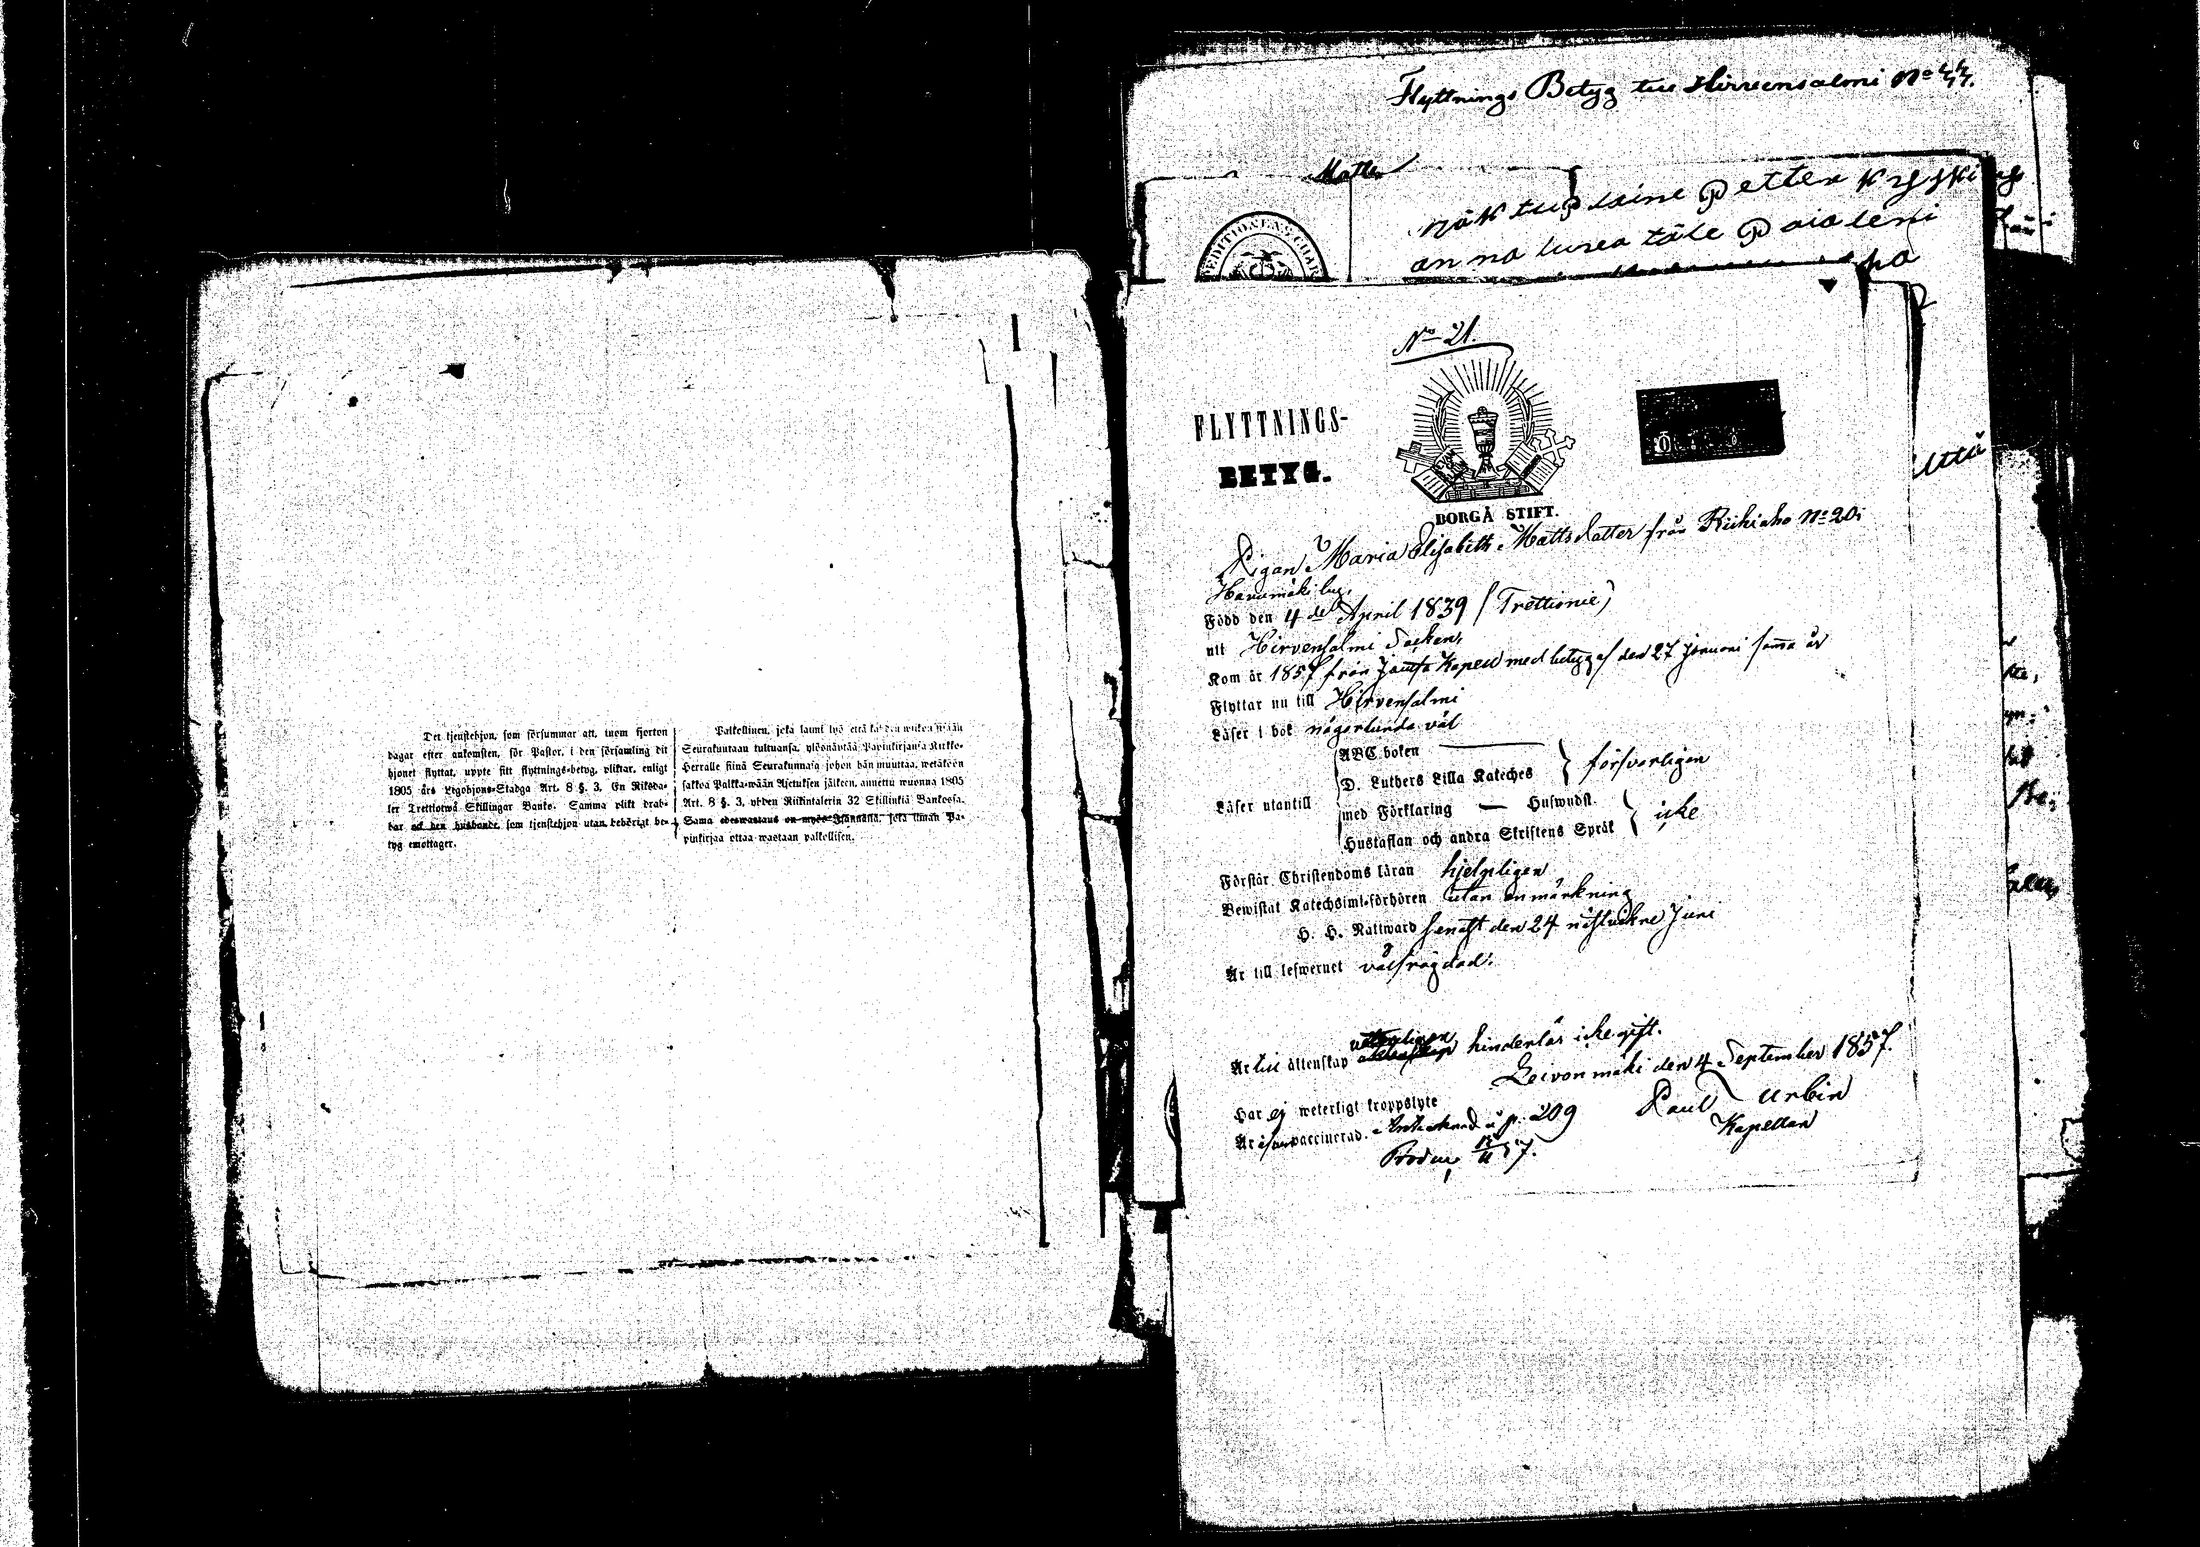 Det tjenstehjon, som försummar att, inom fjorton
dagar efter ankomsten, för Pastor, i den församling dit
hjonet flyttat, uppte sitt flyttnings-betyg, pliktar, enligt
1805 års Legohjons-Stadga Art. 8 §. 3, En Riksda-
ler Trettiotwå Skillingar Banko. Samma plikt drab-
bar ock den husbonde, som tjenstehjon utan behörigt be-
tyg emottager.
Palkollinen, joka laimi lyö että
Seurakuntaan tultuansa, ylösnäyttää Papinkirjansa Kirkko-
Herralle siinä Seurakunnasa johon hän muuttaa, wetäköön
sakkoa Palka-wään Asetuksen jälkeen, annettu wuonna 1805
Art. 8 §. 3, yhden Riikintalerin 32 Skillinkiä Bankossa.
Sama edeswastaus on myös Isännällä, joka ilman Pa-
pinkirjaa ottaa wastaan palkollisen.
Flyttnings Betyg till Hirvensalmi No 44.
Matts
Petter
an na lupa tälle
EDITIONENS CHAR
No 21.
FLYTTNINGS-
BETYG.
BORGÅ STIFT.
Pigan Maria Elisabeth Mattsdatter från Riihiaho No 20.
Havumäki by,
Född den 4de April 1839 (Trettionie)
uti Hirvensalmi Socken,
Kom år 1857 från Jämsä Kapell med betyg af den 27 januari samma år
Flyttar nu till Hirvensalmi
Läser i bok någorlunda väl
ABC boken
D. Luthers Lilla Kateches } försvarligen
Läser utantill
med Förklaring — Huswudst.
Hustaflan och andra Skriftens Språk } icke
Förstår Christendoms läran hjelpligen
Bewistat Katechismi-förhören utan anmärkning
H. H. Nattward senast den 24 nästvekne Juni
Är till lefwernet välfrägdad.
Är till äktenskap vetterligen hinderlös icke gift.
Leivonmäki den 4 September 1857.
Har ej weterligt kroppslyte
Paul Urbin
Är äfven vaccinerad. Antecknad å p. 209
Kapellan
Prod